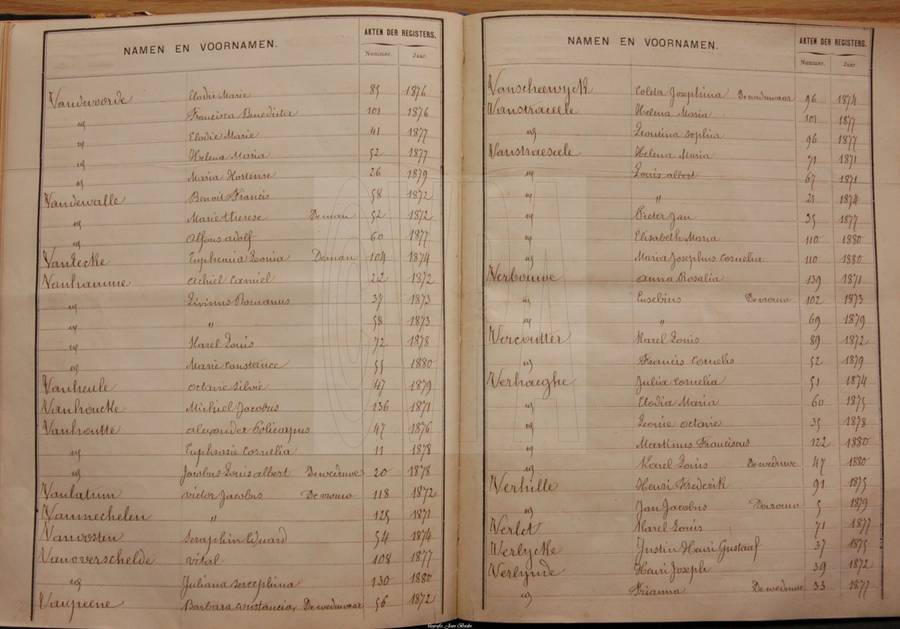 NAMEN EN VOORNAMEN. AKTEN DER REGISTERS.
Nummer. Jaar.
Vandevoorde Elodie Marie 85 1876
Francisca Benedicta 101 1876
Elodie Marie 41 1877
Helena Maria 52 1877
Maria Hortense 26 1879
Vandewalle Benoit Francis 58 1872
Marie therese Deman 52 1872
Alfons adolf 60 1877
Vanhecke Euphemia Leonia Deman 104 1874
Vanhamme achiel Camiel 22 1872
Livinus Romanus 37 1873
" 58 1873
Karel Louis 72 1878
Marie Constance 55 1880
Vanheule octavie Silvie 47 1879
Vanhoucke Michiel Jacobus 136 1871
Vanhoutte alexander Policarpus 47 1876
Euphrasie Cornelia 11 1878
Jacobus Louis albert De weduwe 20 1878
victor Jacobus 118 1872
Vannechelen " 125 1871
Seraphin Eduard 54 1874
Vanoverschelde vital 108 1877
Juliana 130 1880
Barbara constancia De weduwaar 56 1872
NAMEN EN VOORNAMEN. AKTEN DER REGISTERS.
Nummer. Jaar.
Coleta Josephina De weduwaar 96 1874
Vanstraceele Helena Maria 101 1877
Leontina Sophia 96 1877
Vanstraeseele Helena Maria 71 1871
Louis albert 67 1871
" 21 1874
Pieter Jan 35 1877
Elisabeth Maria 110 1880
Maria Josephus Cornelia 110 1880
Verbouwe anna Rosalia 139 1871
Eusebius 102 1873
" 69 1879
Vercoutter Karel Louis 89 1872
Francis Cornelis 52 1879
Verhaeghe Julia Cornelia 51 1874
Elodia Maria 60 1875
Leonie octavie 35 1878
Martinus Franciscus 122 1880
Karel Louis De weduwe 47 1880
Verhille Henri Frederik 91 1875
Jan Jacobus 5 1879
Verlet Karel Louis 71 1877
Verlycke Justin Henri Gustaaf 37 1875
Verlynde Henri Joseph 39 1872
De weduwe 33 1877